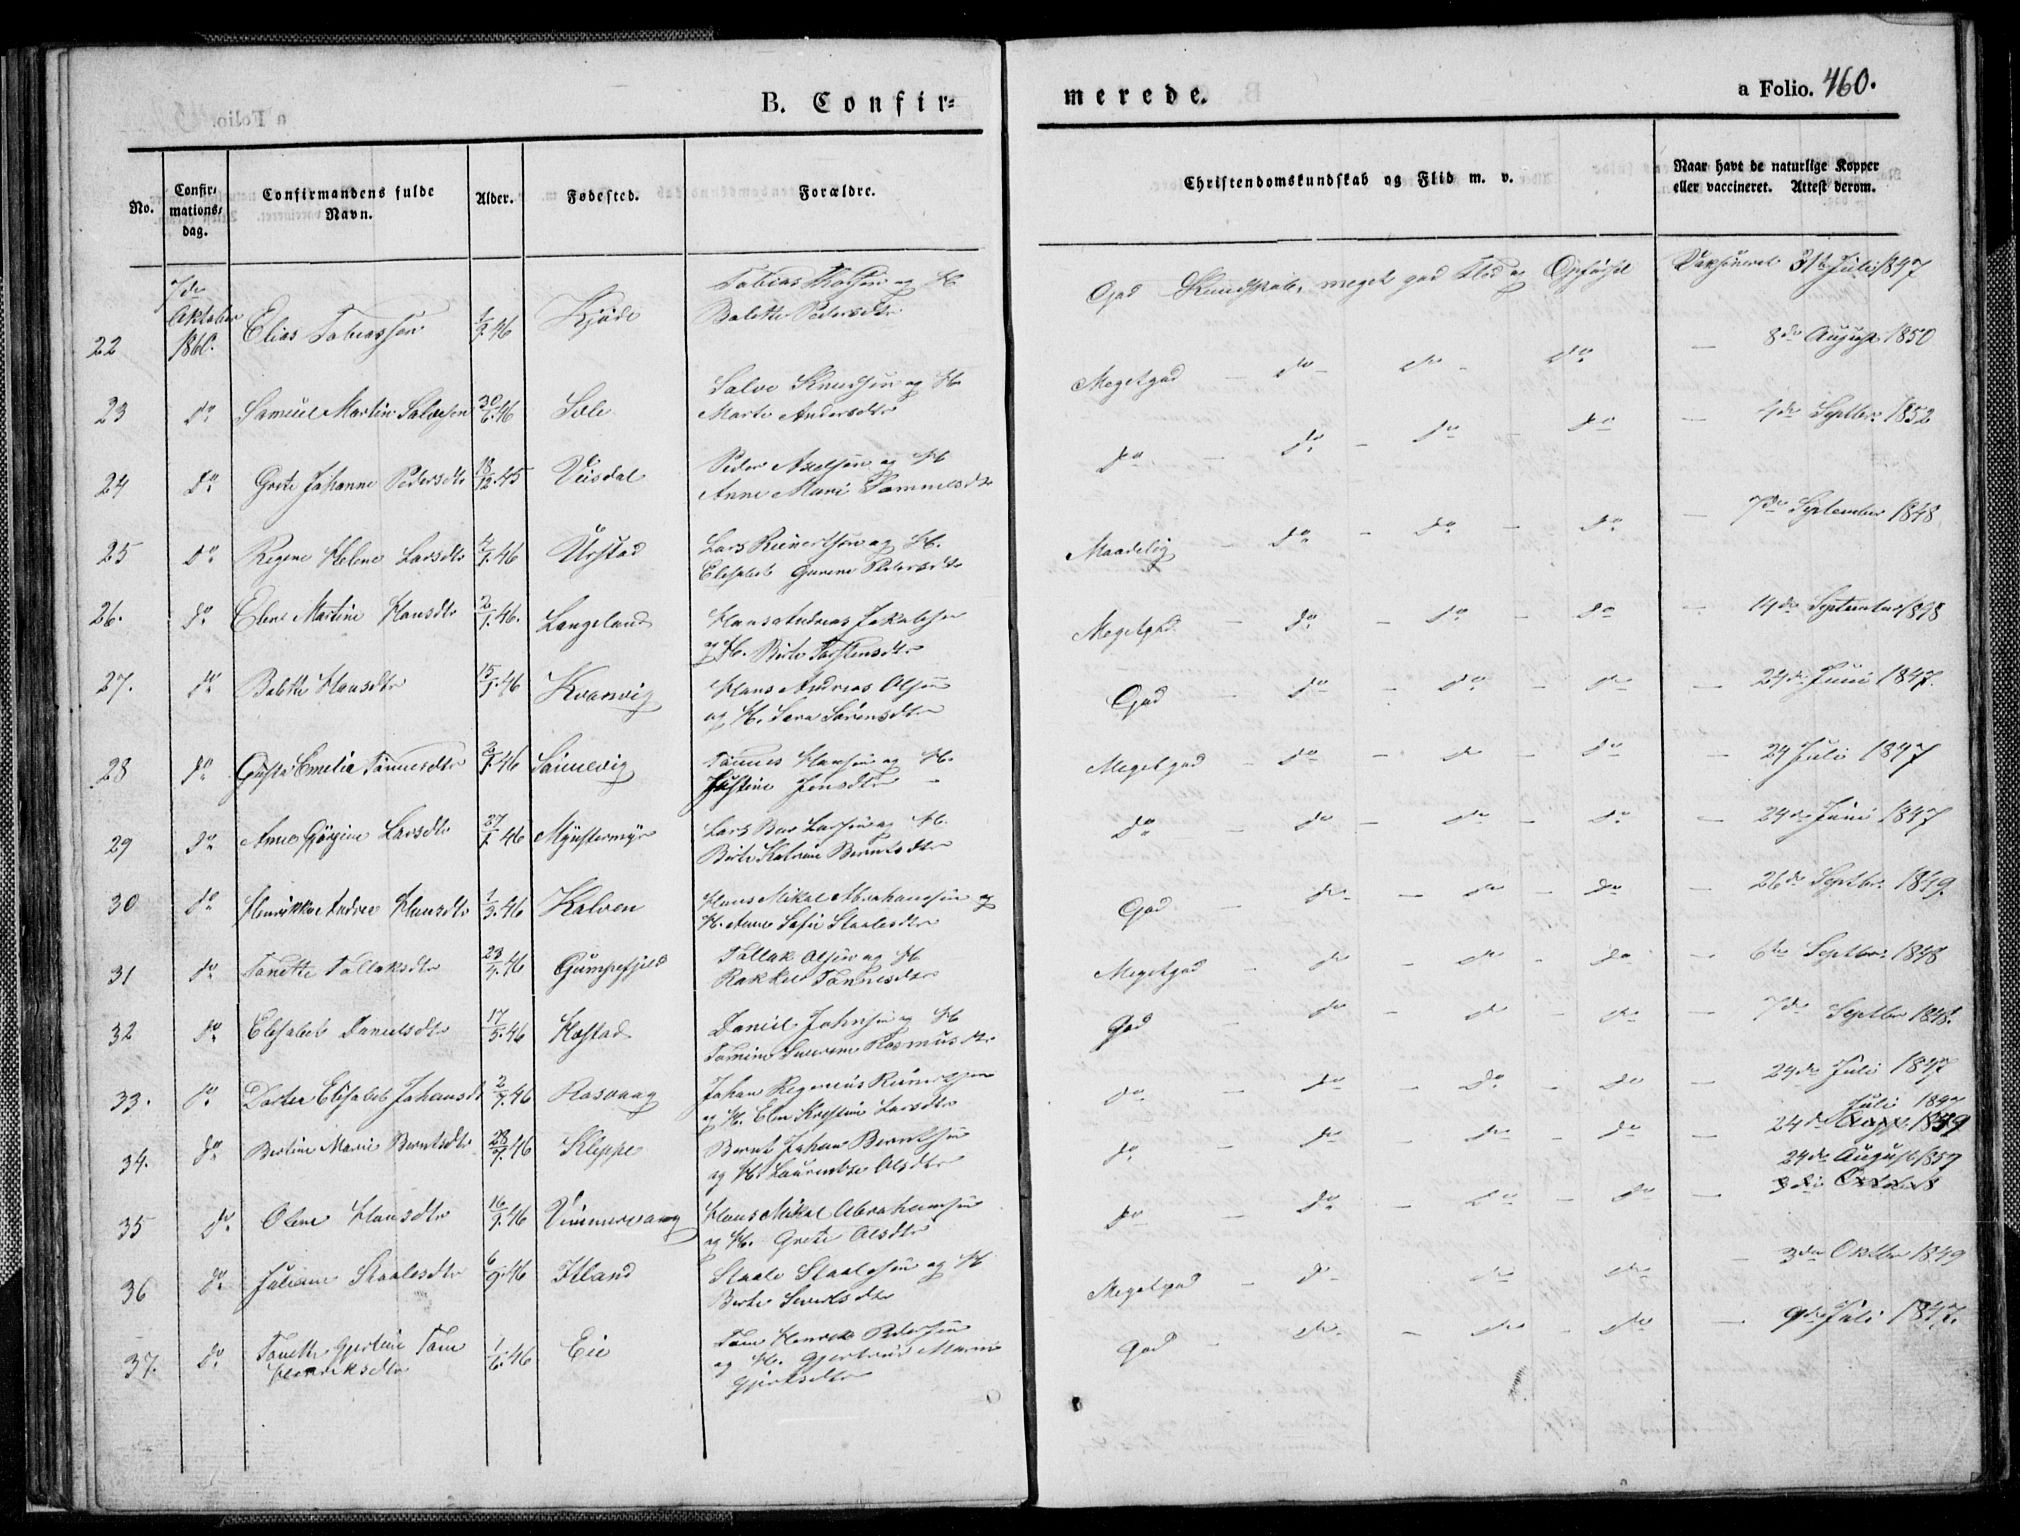 B. Confir=
merede.
a Folio. 460.
No.
Confir-
mations-
dag.
Confirmandens fulde
Navn.
Alder.
Fødested.
Forældre.
Christendomskundskab og Flid m. v.
Naar havt de naturlige Kopper
eller vaccineret. Attest derom.
7de
Oktober
1860.
22 Elias Tobiassen 1/9.46 Kjøde Tobias og H.
Balette Pedersdtr God Kundskab, meget god Flid og Opførsel 31te Juli 1847
23 do Samuel Martin Salvesen 30/6.46 Sæle Salve Knudsen og H.
Marte Andersdtr Megetgod - do - do - do - 8de August 1850
24 do Grete Johanne Pedersdtr 18/12.45 Veisdal Peder Axelsen og H.
Anne Marie Tønnesdtr do - do - do - do - 4de Septbr. 1852
25 do Regine Helene Larsdtr 46 Urstad Lars Reinertsen og H.
Elisabeth Gurine Pedersdtr Maadelig - do - do - do - 7de September 1848
26. do Elene Martine Hansdtr 2/1.46. Langeland Hans Andreas Jakobsen
og H. Birte Torstensdtr Megetgod - do - do - do - 14de September 1848
27. do Balette Hansdtr 15/1.46 Kvanvig Hans Andreas Olsen
og H. Sara Sørensdtr God - do - do - do - 24de Juni 1847.
28 do Gusta Emelia Tønnesdtr 46 Sønnevig Tønnes Hansen og H.
Justine Jensdtr Megetgod - do - do - do - 24 Juli 1847
29 do Anne Gørgine Larsdtr 27/1.46 Mystermyr Lars Larsen og H.
Birte Katrine Berntsdtr do - do - do - do - 24de Juni 1847
30 do Henrikke Andrea Hansdtr 1/3.46 Kalven Hans Mikal Abrahamsen og
H. Anne Sofie Staalesdtr God - do - do - do - 26de Septbr. 1849.
31 do Tonette Tollaksdtr 23/4.46 Gumpefjeld Tollak Olsen og H.
Rakkel Tønnesdtr Megetgod - do - do - do - 6te Septbr. 1848
32 do Elisabeth Danielsdtr 17/5.46 Hæstad Daniel Johnsen og H.
Tomine Severine Rasmusdtr God - do - do - do - 7de Septbr 1848.
33. do Dortea Elisabeth Johansdtr 2/7.46 Rasvaag Johan Regenius Reinertsen
og H. Elen Kristine Larsdtr do - do - do - do - 24de Juli 1847
34. do Bertine Marie Berntsdtr 28/7.46 Kleppe Bernt Johan Berntsen
og H. Laurentse Olsdtr do - do - do - do - 24de Juli 1847
35 do Olene Hansdtr 16/9.46 Hans Mikal Abrahamsen
og H. Grete Olsdtr do - do - do - do - 24de August 1857
3die Oktober
36 do Juliane Staalesdtr 6/9.46 Itland Staale Staalesen og H.
Berte Sivertsdtr Megetgod - do - do - do - 3die Oktbr 1849
37. do Tonette Gjertine Tom
Henriksdtr 1/6.46 Eie Tom Henrik Pedersen
og H. Gjertrud Marie
Gjertsdtr God - do - do - do - 9de Juli 1847.